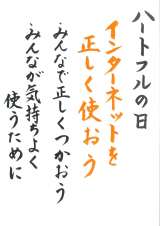 ハートフルの日
インターネットを
正しく使おう
・みんなで正しくつかおう
・みんなが気持ちよく
使うために